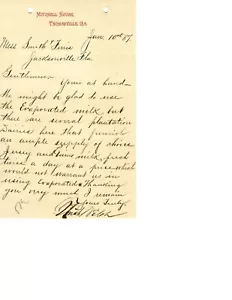 Mitchell House,
Thomasville, Ga.
June 10th 87
Jacksonville Fla
Gentlemen
Yours at hand
We might be glad to use
the Evaporated milk but
there are several plantation
Dairies here that furnish
an ample supply of choice
Jersey milk fresh
twice a day at a price which
would not warrant us in
using Evaporated Thanking
you very much I remain
Yours Truly